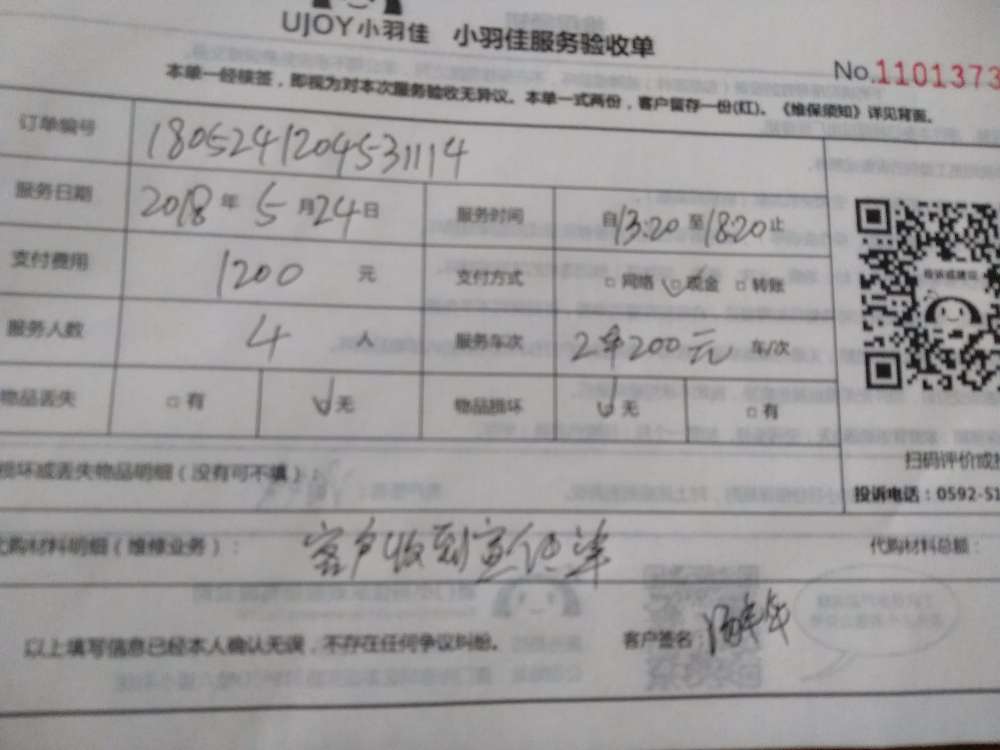 UJOY小羽佳 小羽佳服务验收单
No.1101373
本单一经核签，即视为对本次服务验收无异议。本单一式两份，客户留存一份(红)。《维保须知》详见背面。
订单编号 1805241204531114
服务日期 2018年5月24日 服务时间 自13:20至18:20止
支付费用 1200 元 支付方式 □网络 □现金 □转账
服务人数 4 人 服务车次 2车200元 车/次
物品丢失 □有 无 物品损坏 无 □有
损坏或丢失物品明细（没有可不填）：
扫码评价或
投诉电话：0592-51
代购材料明细（维修业务）： 客户收到宣传单
代购材料总额：
以上填写信息已经本人确认无误，不存在任何争议纠纷。 客户签名：